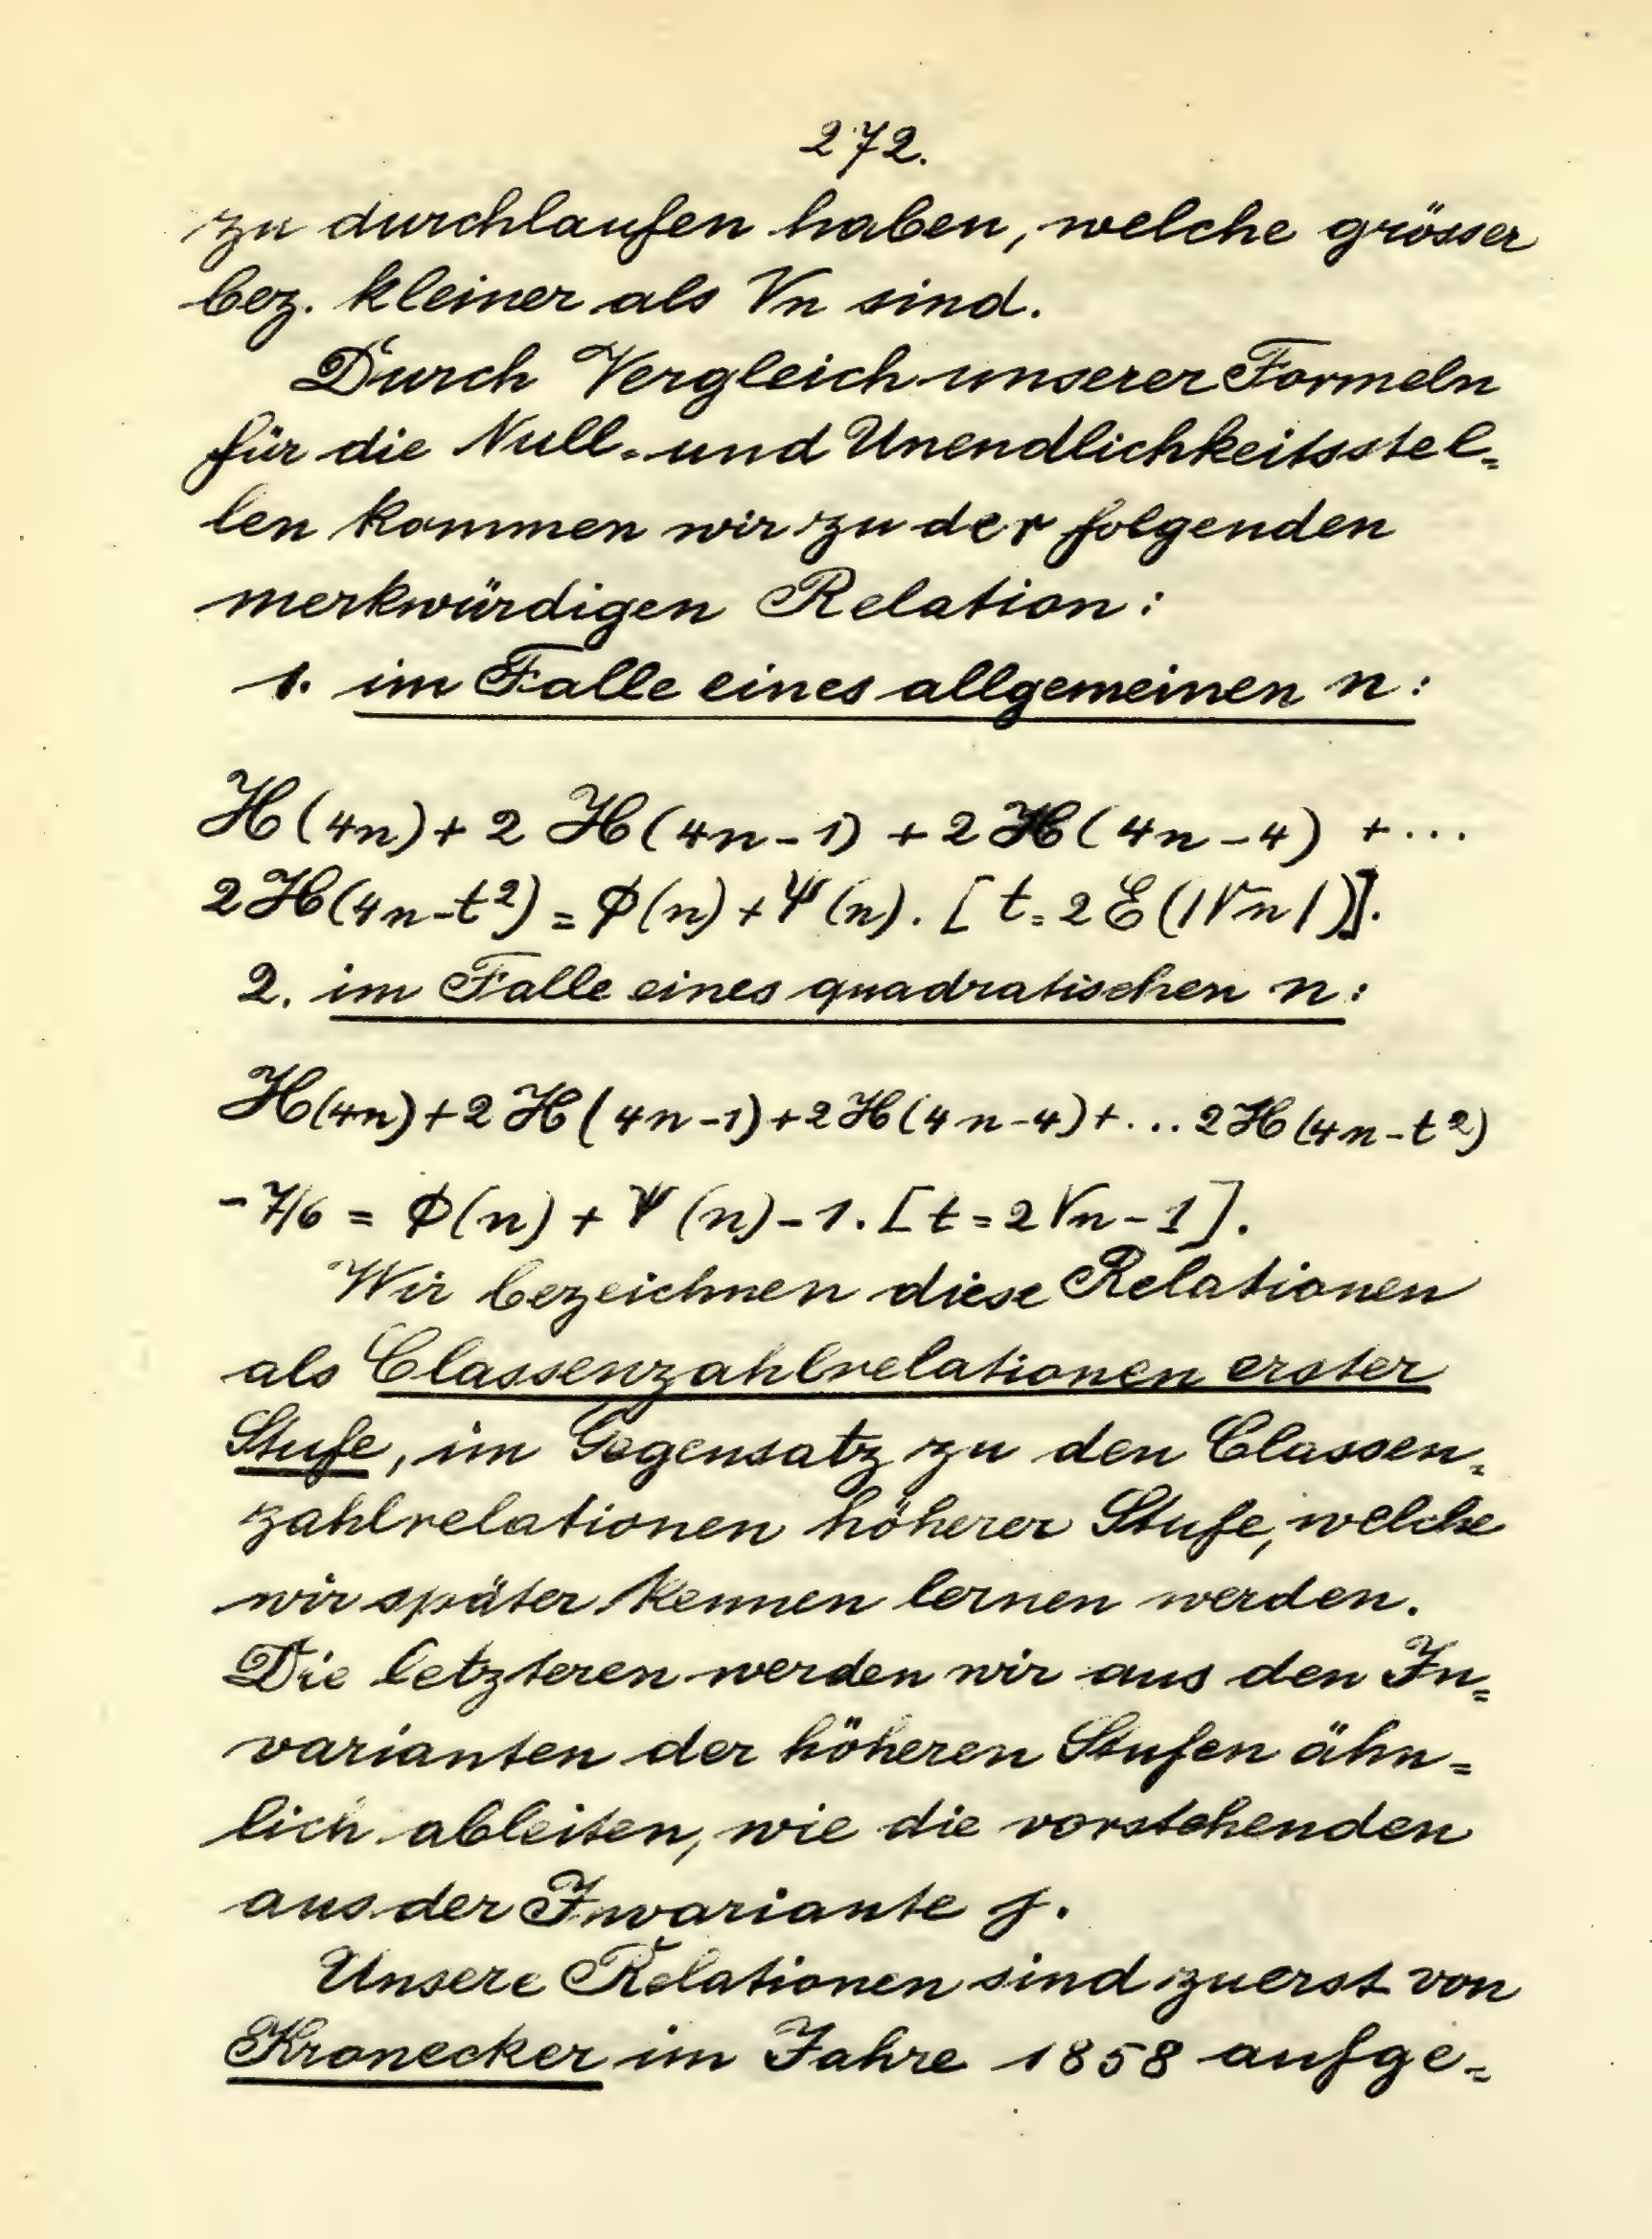 272.
zu durchlaufen haben, welche grösser
bez. kleiner als √n sind.
Durch Vergleich unserer Formeln
für die Null- und Unendlichkeitsstel-
len kommen wir zu der folgenden
merkwürdigen Relation:
1. im Falle eines allgemeinen n:
H(4n) + 2 H(4n-1) + 2 H(4n-4) + ...
2 H(4n-t²) = Φ(n) + Ψ(n). [t = 2 E(|√n|)].
2. im Falle eines quadratischen n:
H(4n) + 2 H(4n-1) + 2 H(4n-4) + ... 2 H(4n-t²)
- 7/6 = Φ(n) + Ψ(n) - 1. [t = 2√n - 1].
Wir bezeichnen diese Relationen
als Classenzahlrelationen erster
Stufe, im Gegensatz zu den Classen-
zahlrelationen höherer Stufe, welche
wir später kennen lernen werden.
Die letzteren werden wir aus den In-
varianten der höheren Stufen ähn-
lich ableiten, wie die vorstehenden
aus der Invariante j.
Unsere Relationen sind zuerst von
Kronecker im Jahre 1858 aufge-